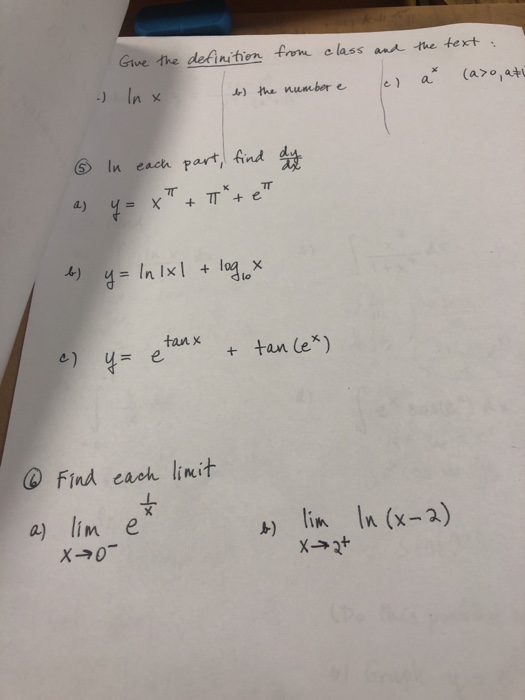 Give the definition from class and the text :
.) ln x b) the number e c) aˣ (a>0, a≠1
⑤ In each part, find dy/dx
a) y = x^π + π^x + e^π
b) y = ln|x| + log₁₀ x
c) y = e^(tan x) + tan(eˣ)
⑥ Find each limit
a) lim e^(1/x) b) lim ln(x-2)
x→0⁻ x→2⁺